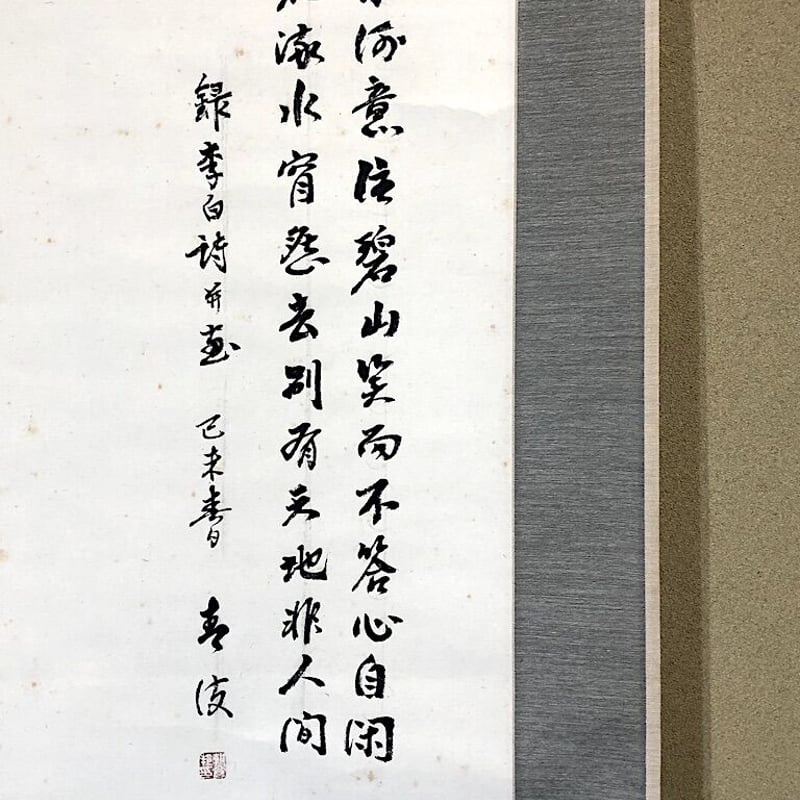 何意住碧山笑而不答心自閑
流水窅然去別有天地非人間
錄李白詩并画 己未春日 青波